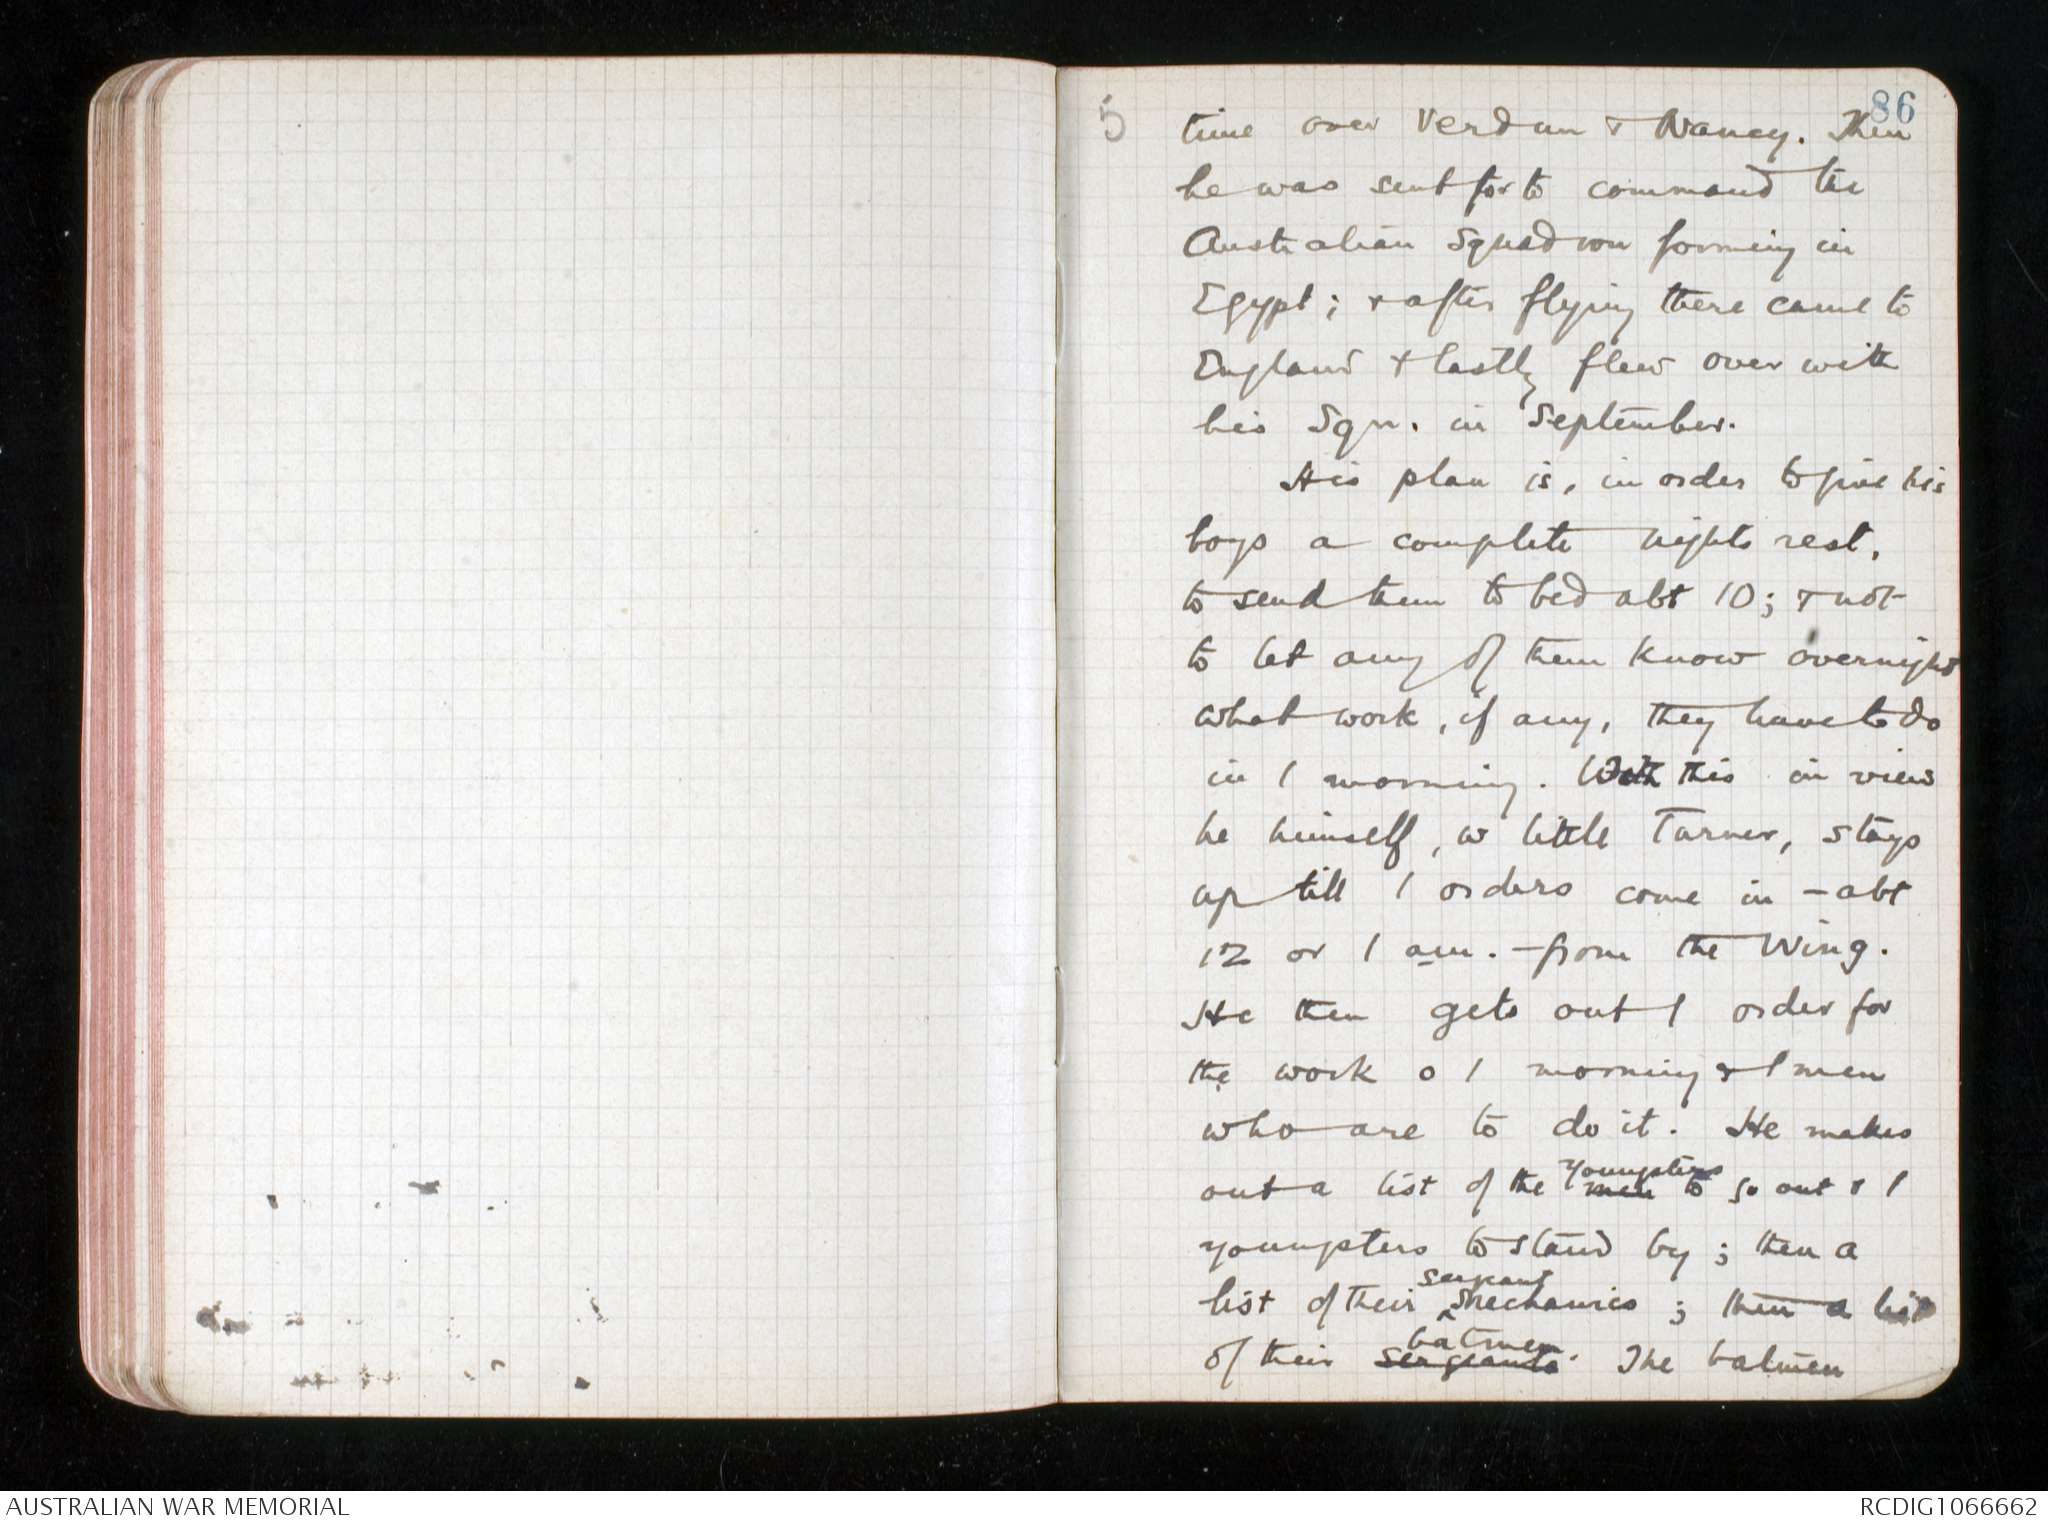 5
86
time over Verdun & Nancy. Then
he was sent for to command the
Australian Squadron forming in
Egypt; & after flying there came to
England & lastly flew over with
his Sqn. in September.
His plan is, in order to give his
boys a complete nights rest,
to send them to bed abt 10; & not
to let any of them know overnight
what work, if any, they have to do
in / morning. With this in view
he himself, w little Turner, stays
up till / orders come in - abt
12 or 1 am. - from the Wing.
He then gets out / order for
the work o / morning & / men
who are to do it. He makes
out a list of the youngsters men to go out & /
youngsters to stand by; then a
list of their sergeant mechanics; then a list
of their batmen sergeants. The batmen
AUSTRALIAN WAR MEMORIAL
RCDIG1066662